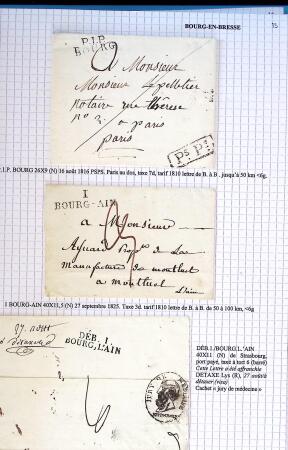 BOURG-EN-BRESSE
15
P.1.P.
BOURG
A Monsieur
Monsieur Lepelletier
notaire rue thérèse
no 2. a paris
paris
Ps. Ps.
P.I.P. BOURG 26X9 (N) 16 août 1816 PSPS. Paris au dos, taxe 7d, tarif 1810 lettre de B. à B. , jusqu'à 50 km <6g.
1
BOURG-AIN
a Monsieur
manufacture de montluel
a montluel
L'ain
1 BOURG-AIN 40X11,5 (N) 27 septembre 1825. Taxe 3d. tarif 1810 lettre de B. à B. de 50 à 100 km, <6g
27 aout
DÉB. 1
BOURG.L'AIN
DÉB.1/BOURG.L.'AIN
40X11 (N) de Strasbourg,
port payé, taxe à tort 6 (barré)
Cette Lettre a été affranchie
DETAXE Lys (R), 27 août à
détaxer (visa)
Cachet « jury de médecine »
JURY DE